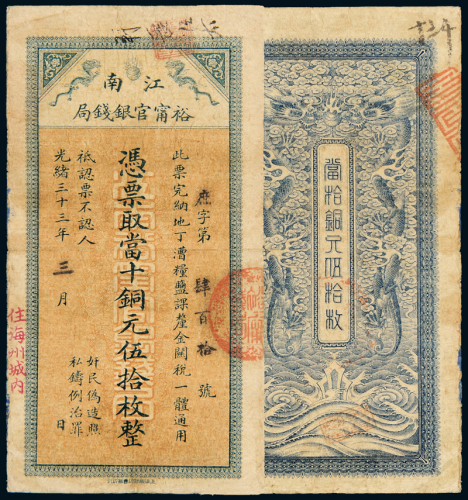 江南
裕甯官銀錢局
此票完納地丁漕糧鹽課釐金關稅一體通用
字第肆百拾號
憑票取當十銅元伍拾枚整
祇認票不認人
光緒三十三年三月日
奸民偽造照
私鑄例治罪
住海州城内
當拾銅元伍拾枚